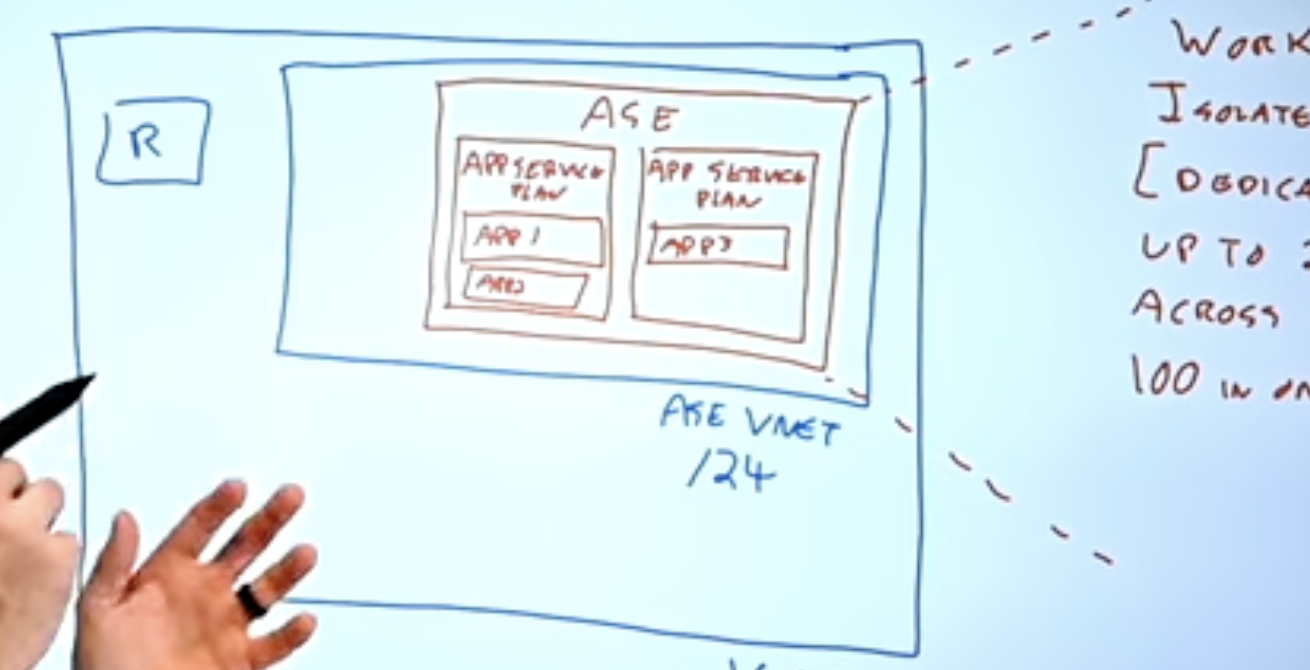 R
ASE
APP SERVICE
PLAN
APP 1
APP2
APP SERVICE
PLAN
APP3
ASE VNET
/24
WORK
ISOLATE
[DEDICA
UP TO
ACROSS
100 IN